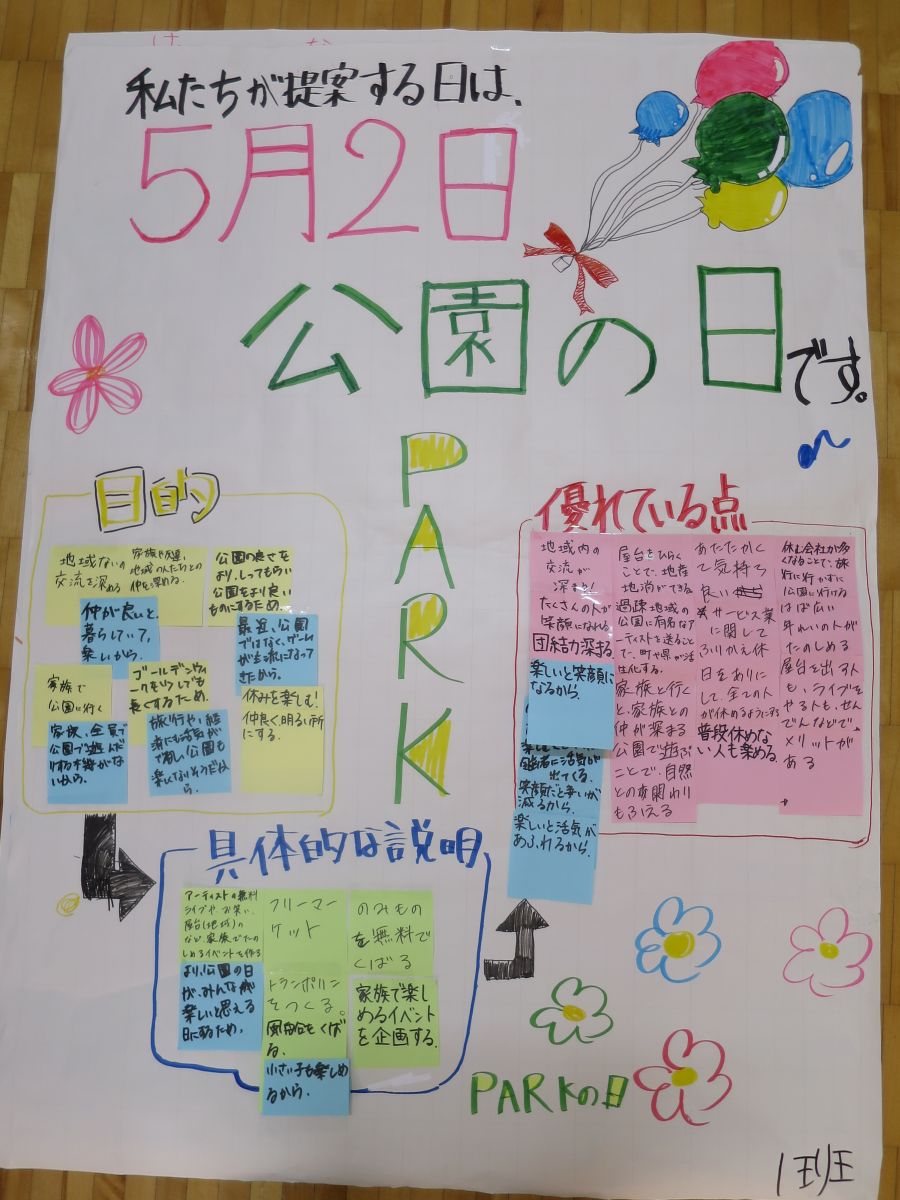 私たちが提案する日は、
5月2日
公園の日です。
PARK
目的
地域ないの
交流を深める
家族や友達、
地域の人たちとの
仲を深める。
公園の良さを
より、しってもらい
公園をより良い
ものにするため。
仲が良いと、
暮らしていて、
楽しいから。
最近、公園
ではなく、ゲーム
が主流になって
きたから。
家族で
公園に行く
ゴールデンウィ
ークを少しでも
長くするため。
休みを楽しむ!
仲良く明るい所
にする。
家族、全員で
公園で遊んだ
りする機会がな
いから。
旅行や
活気が
公園も
楽し
から。
優れている点
地域内の
交流が
深まる!
たくさんの人が
笑顔になれる。
団結力深まる。
楽しいと笑顔に
なるから。
に活気が
出てくる。
笑顔だと争いが
減るから。
楽しいと活気が
あふれるから。
屋台をひらく
ことで、地産
地消ができる
過疎地域の
公園に有名なア
ーティストを送ること
で、町や県が活
性化する。
家族と行く
と、家族との
仲が深まる
公園で遊ぶ
ことで、自然
との関わり
もふえる
あたたかく
て気持ち
良い
サービス業
に関して
ふりかえ休
日をありに
して、全ての人
が休めるようにする
普段休めな
い人も楽める。
休む会社が多
くなることで、旅
行に行かずに
公園に行ける
はば広い
年れいの人が
たのしめる
屋台を出る人
も、ライブを
やる人も、せん
でんなどで
メリットが
ある
具体的な説明
アーティストの無料
ライブや、お笑い、
屋台(地域)の
など、家族でたの
しめるイベントを作る
より、公園の日
が、みんなが
楽しいと思える
日にするため。
フリーマー
ケット
トランポリン
をつくる。
風船をくば
る。
小さい子も楽しめ
るから。
のみもの
を無料で
くばる
家族で楽し
めるイベント
を企画する。
PARKの日
1班